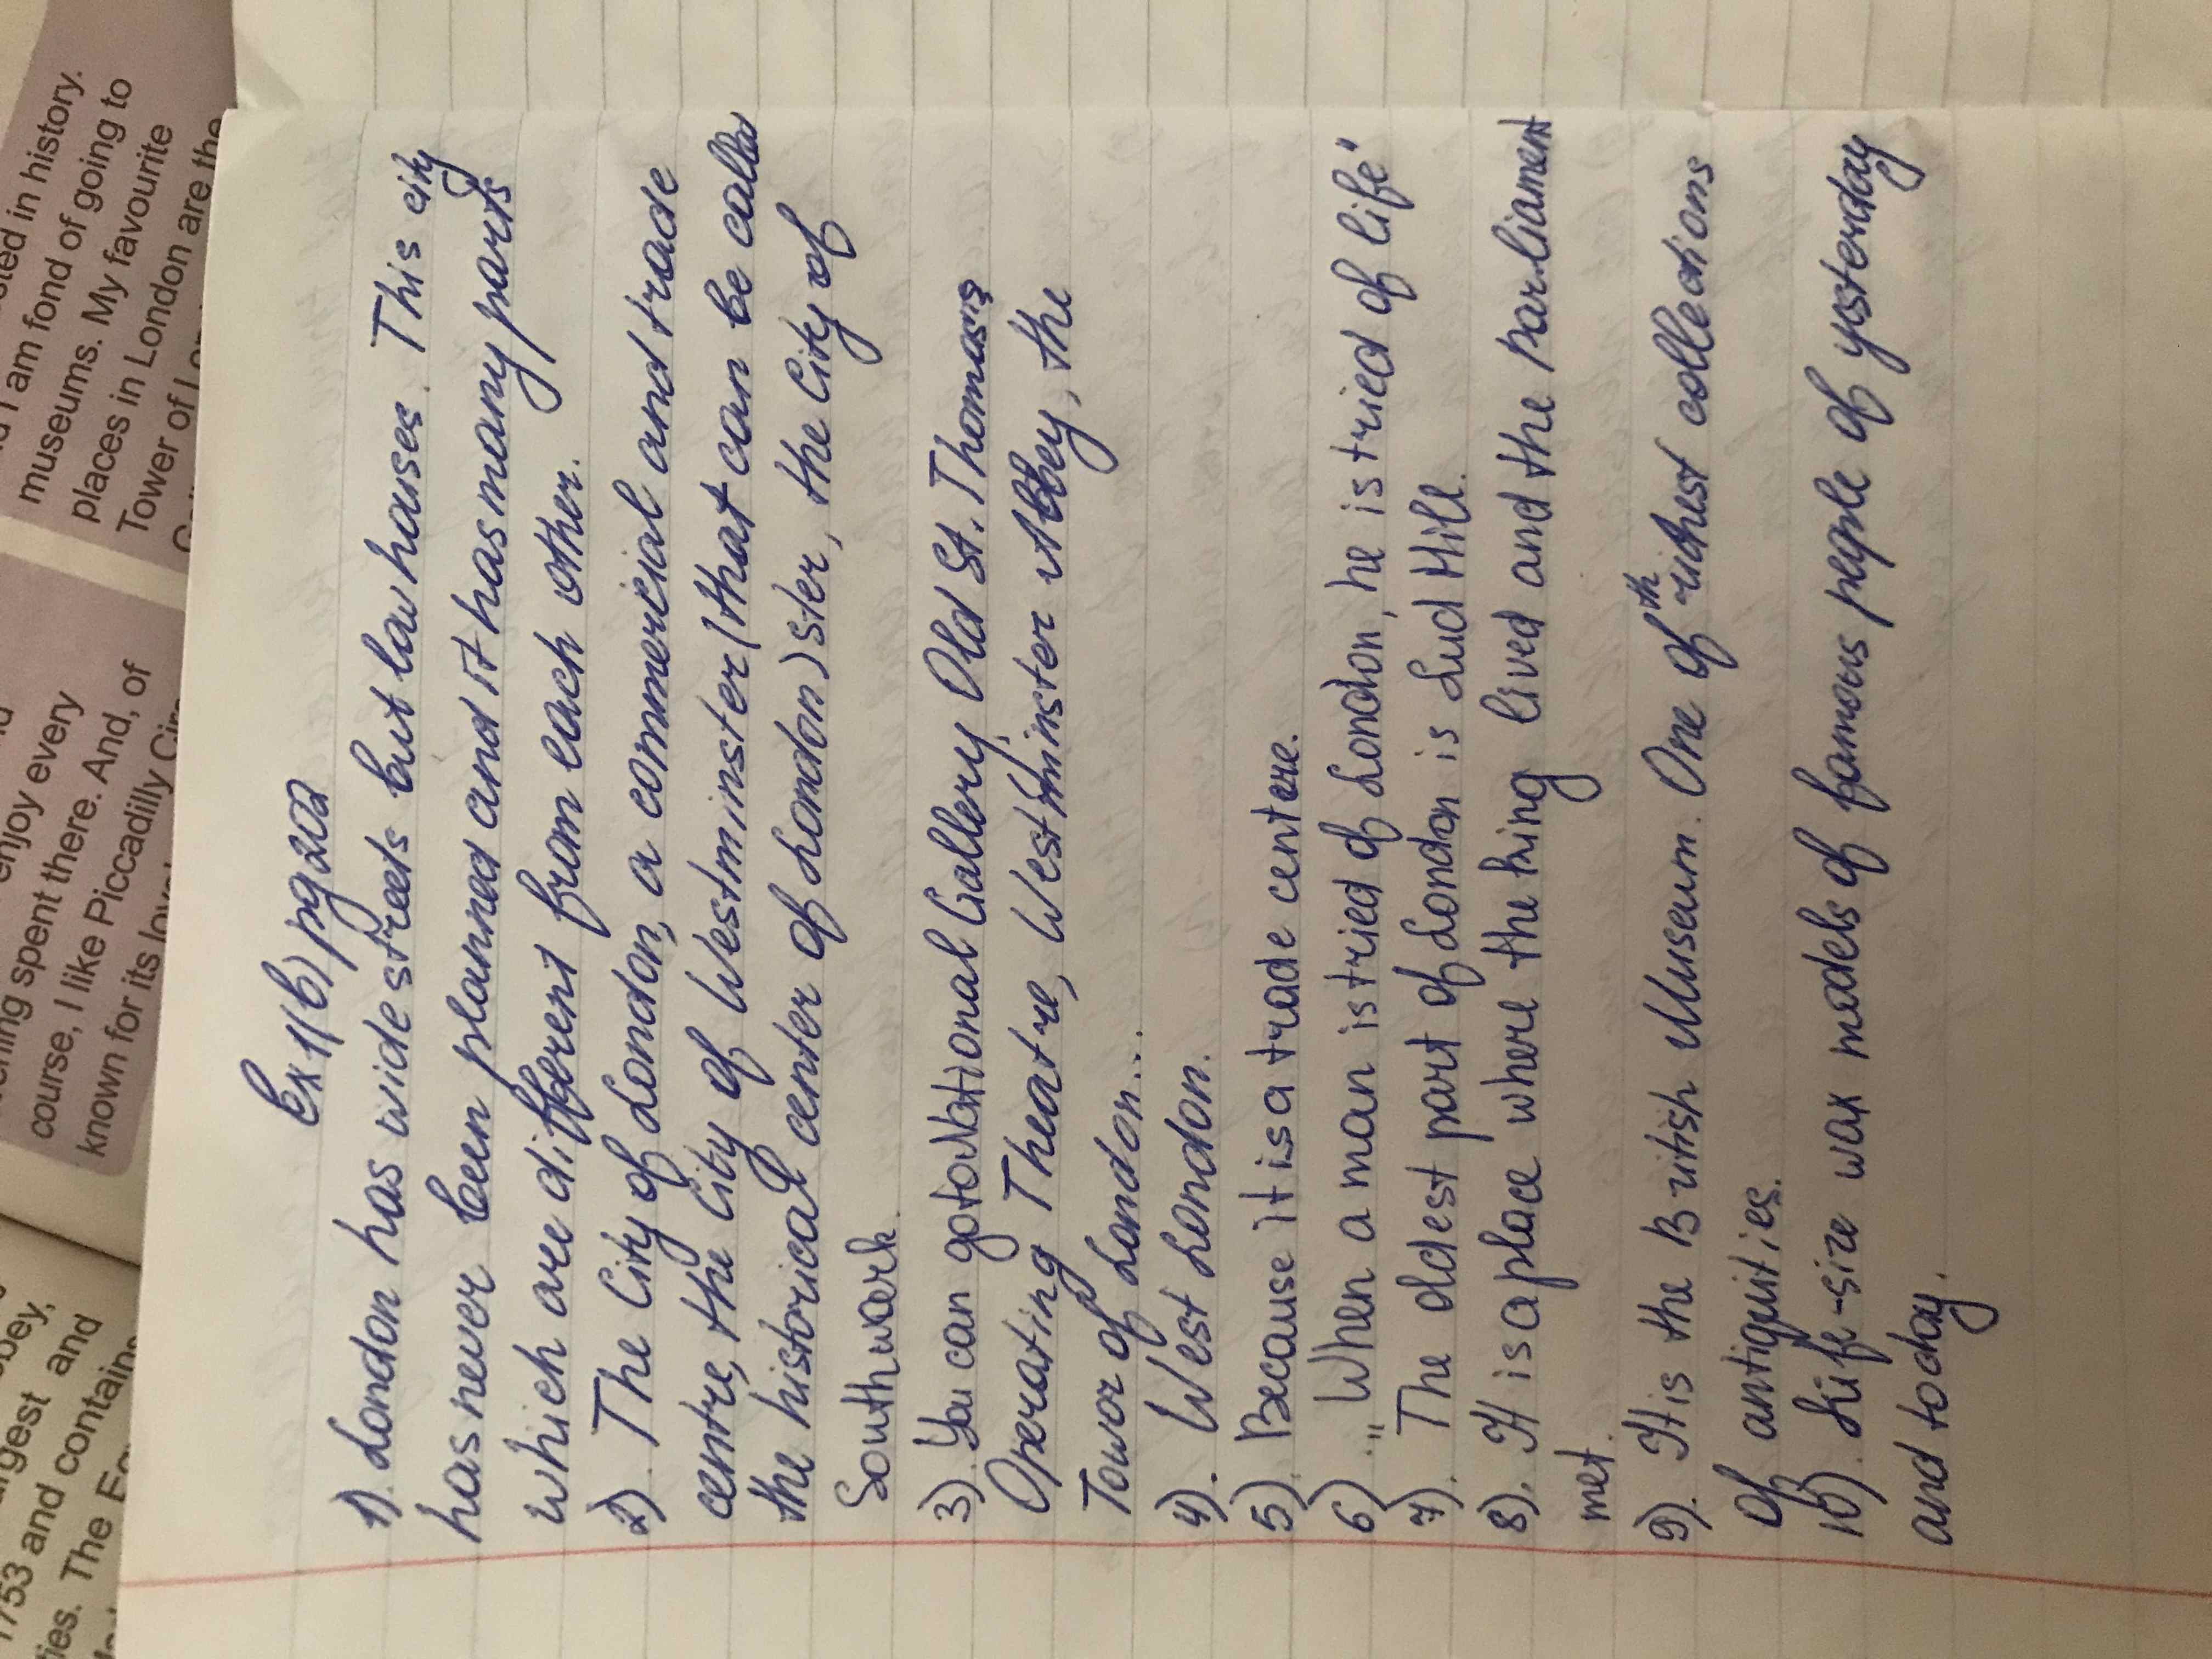 ted in history.
I am fond of going to
museums. My favourite
places in London are the
Tower of
enjoy every
spent there. And, of
course, I like Piccadilly
known for its
argest and
1753 and contains
ties. The
Ex 1(b) pg 202
1). London has wide streets but low houses. This city
has never been planned and it has many parts
which are different from each other.
2). The City of London, a commercial and trade
centre, the City of Westminster (that can be called
the historical center of London) ster, the City of
Southwark.
3). You can go to National Gallery, Old St. Thomas's
Operating Theatre, Westminster Abbey, the
Tower of London...
4). West London.
5). Because it is a trade centere.
6) .„ When a man is tried of London, he is tried of life"
7). The oldest part of London is Lud Hill.
8). It is a place where the king lived and the parliament
met.
9). It is the British Museum. One of th richest collections
of antiquities.
10). Life-size wax models of famous people of yesterday
and today.